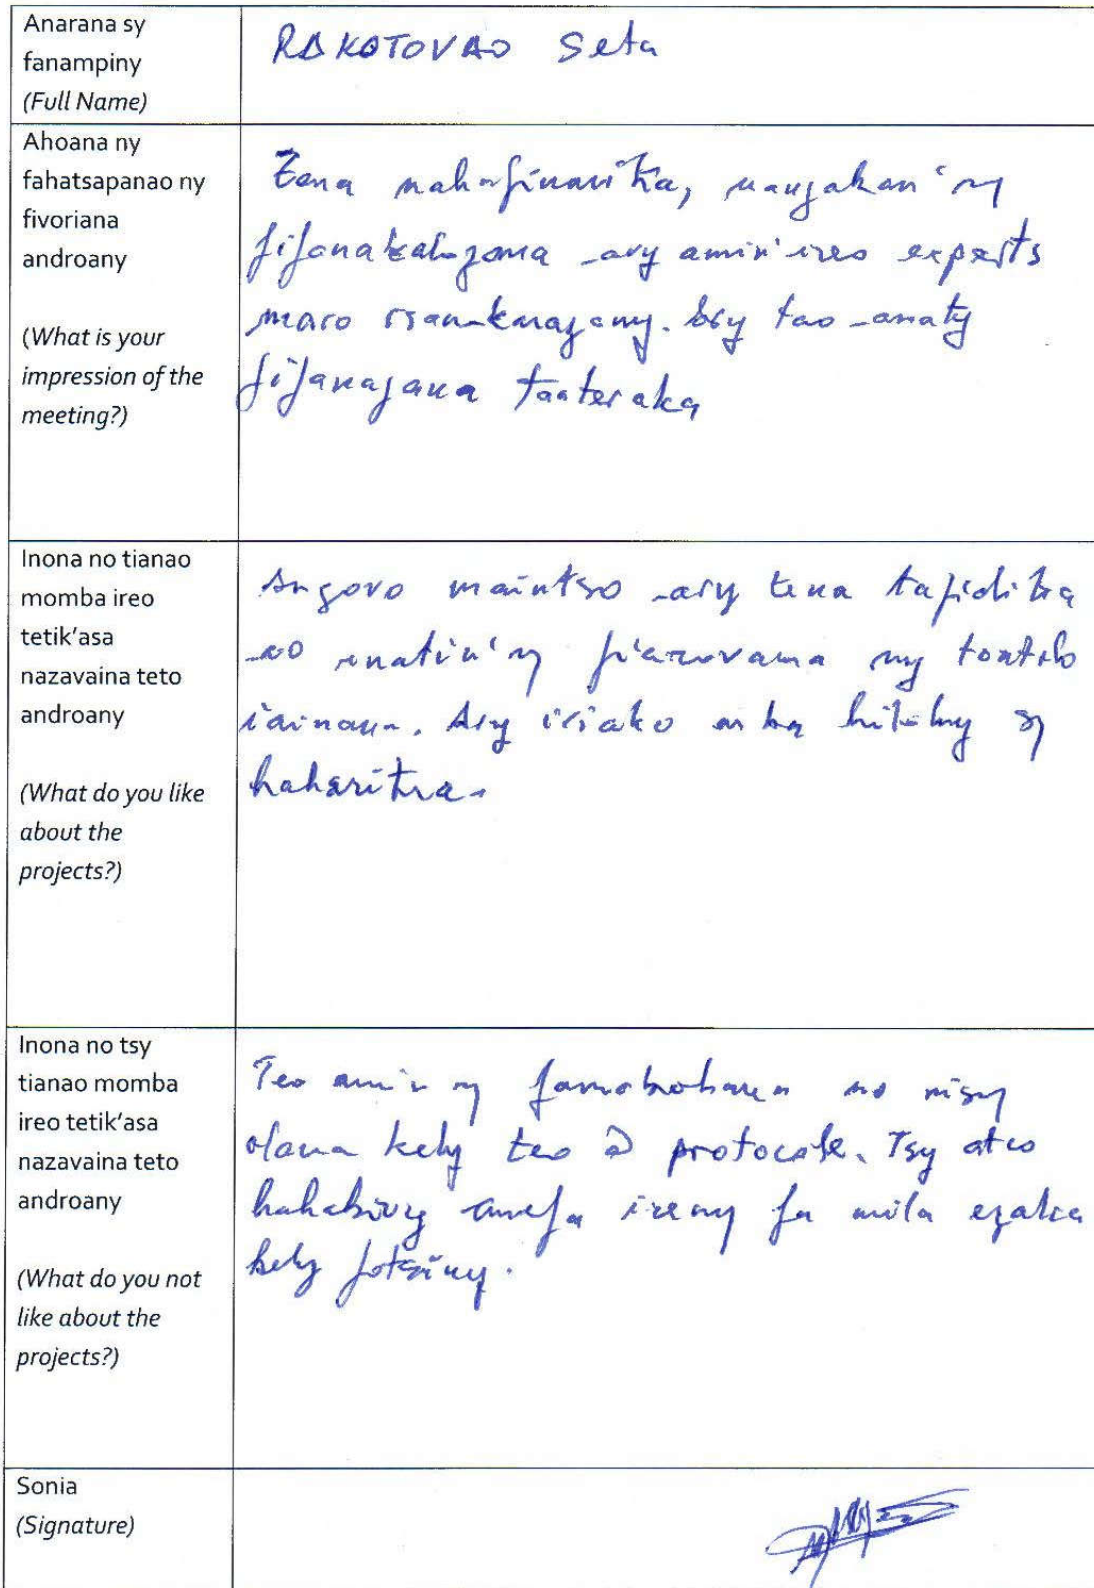 Anarana sy
fanampiny
(Full Name)
RAKOTOVAO Seta
Ahoana ny
fahatsapanao ny
fivoriana
androany
(What is your
impression of the
meeting?)
Tena mahafinaritra, ny
fifanakalozana ary amin'ireo experts
maro samihafa. Ary tao anaty
fifanajana tanteraka
Inona no tianao
momba ireo
tetik'asa
nazavaina teto
androany
(What do you like
about the
projects?)
Angovo maintso ary tena tafiditra
ao anatin'ny fiarovana ny tontolo
iainana. Ary iriako mba hitohy sy
haharitra.
Inona no tsy
tianao momba
ireo tetik'asa
nazavaina teto
androany
(What do you not
like about the
projects?)
Teo amin ny no misy
olana kely teo @ protocole. Tsy
hahakivy anefa ireny fa mila ezaka
kely fotsiny.
Sonia
(Signature)